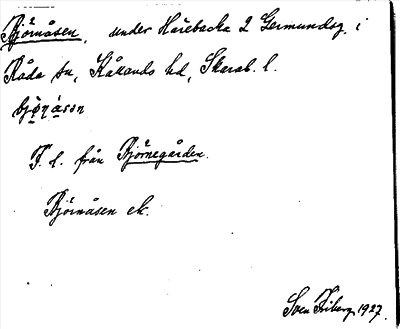 Björnåsen, under Harebacka 2 Germundsg. i
Råda sn, Kållands hd, Skarab. l.
bjø̣ṇạ̊sən
T. l. från Björnegården.
Björnåsen ek.
Sven Friberg 1927.